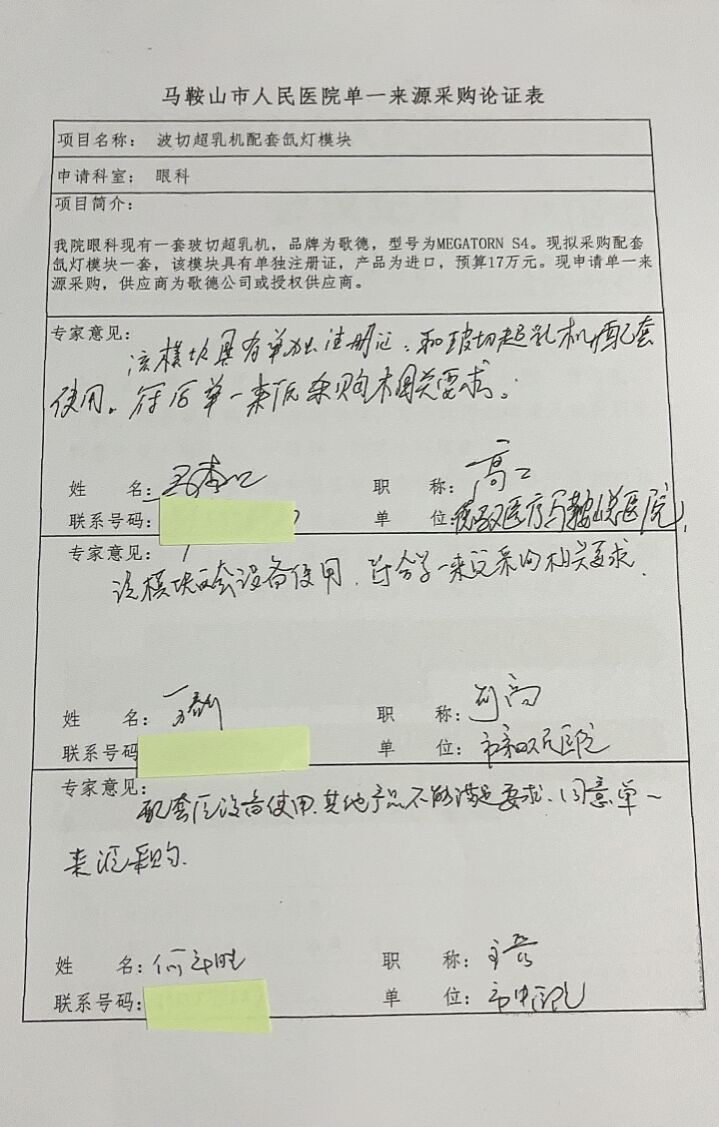 马鞍山市人民医院单一来源采购论证表
项目名称: 波切超乳机配套氙灯模块
申请科室: 眼科
项目简介:
我院眼科现有一套玻切超乳机,品牌为歌德,型号为MEGATORN S4。现拟采购配套
氙灯模块一套,该模块具有单独注册证,产品为进口,预算17万元。现申请单一来
源采购,供应商为歌德公司或授权供应商。
专家意见:
该模块具有单独注册证,和玻切超乳机配套
使用。符合单一来源采购相关要求。
姓 名: 职 称: 高工
联系号码: 单 位: 医疗马鞍山总医院
专家意见:
该模块配套设备使用,符合单一来源采购相关要求.
姓 名: 职 称: 副高
联系号码 单 位:
专家意见:
配套原设备使用.其他产品不能满足要求.同意单一
来源采购.
姓 名: 何 职 称:
联系号码: 单 位: